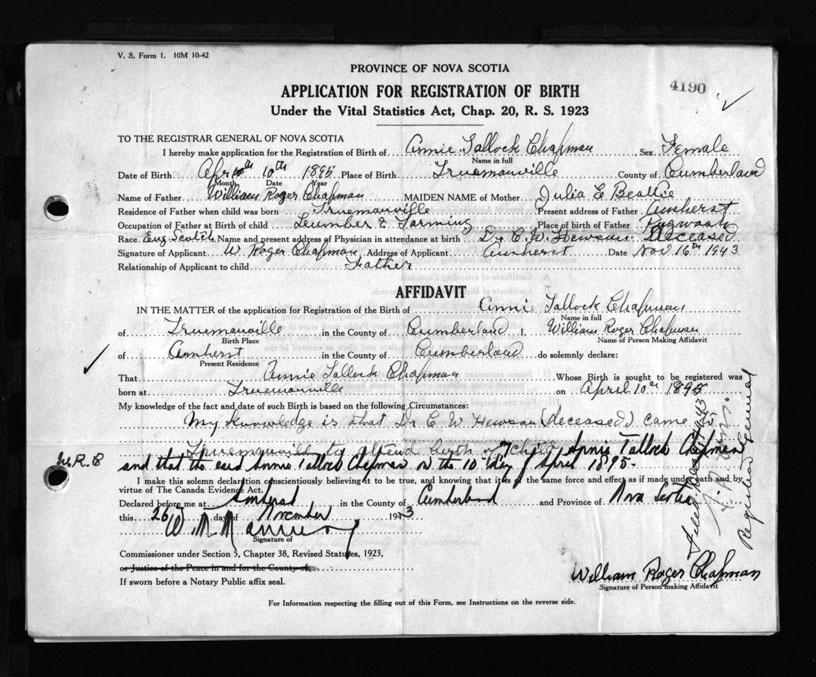 V. S. Form 1. 10M 10-42
PROVINCE OF NOVA SCOTIA
4190
APPLICATION FOR REGISTRATION OF BIRTH
Under the Vital Statistics Act, Chap. 20, R. S. 1923
TO THE REGISTRAR GENERAL OF NOVA SCOTIA
I hereby make application for the Registration of Birth of Annie Tallock Chapman Sex Female
Name in full
Date of Birth April 10th 1895 Place of Birth Truemanville County of Cumberland
Month Date Year
Name of Father William Roger Chapman MAIDEN NAME of Mother Julia E Beattie
Residence of Father when child was born Truemanville Present address of Father Amherst
Occupation of Father at Birth of child Lumber & Farming Place of birth of Father Pugwash
Race Eng Scotch Name and present address of Physician in attendance at birth Dr C. W. Hewson Deceased
Signature of Applicant W. Roger Chapman Address of Applicant Amherst Date Nov 16th 1943
Relationship of Applicant to child Father
AFFIDAVIT
IN THE MATTER of the application for Registration of the Birth of Annie Tallock Chapman
Name in full
of Truemanville in the County of Cumberland I, William Roger Chapman
Birth Place Name of Person Making Affidavit
of Amherst in the County of Cumberland do solemnly declare:
Present Residence
That Annie Tallock Chapman Whose Birth is sought to be registered was
born at Truemanville on April 10th 1895
My knowledge of the fact and date of such Birth is based on the following Circumstances:
My Knowledge is that Dr C W Hewson (deceased) came to
Truemanville to attend birth of child Annie Tallock Chapman
W.R.C
and that the said Annie Tallock Chapman on the 10th day of April 1895.
I make this solemn declaration conscientiously believing it to be true, and knowing that it is of the same force and effect as if made under oath and by
virtue of The Canada Evidence Act.
Declared before me at Amherst in the County of Cumberland and Province of Nova Scotia
this 26 day of November 1943
Signature of
Commissioner under Section 5, Chapter 38, Revised Statutes, 1923,
or Justice of the Peace in and for the County of
If sworn before a Notary Public affix seal.
William Roger Chapman
Signature of Person making Affidavit
For Information respecting the filling out of this Form, see Instructions on the reverse side.
Registrar General